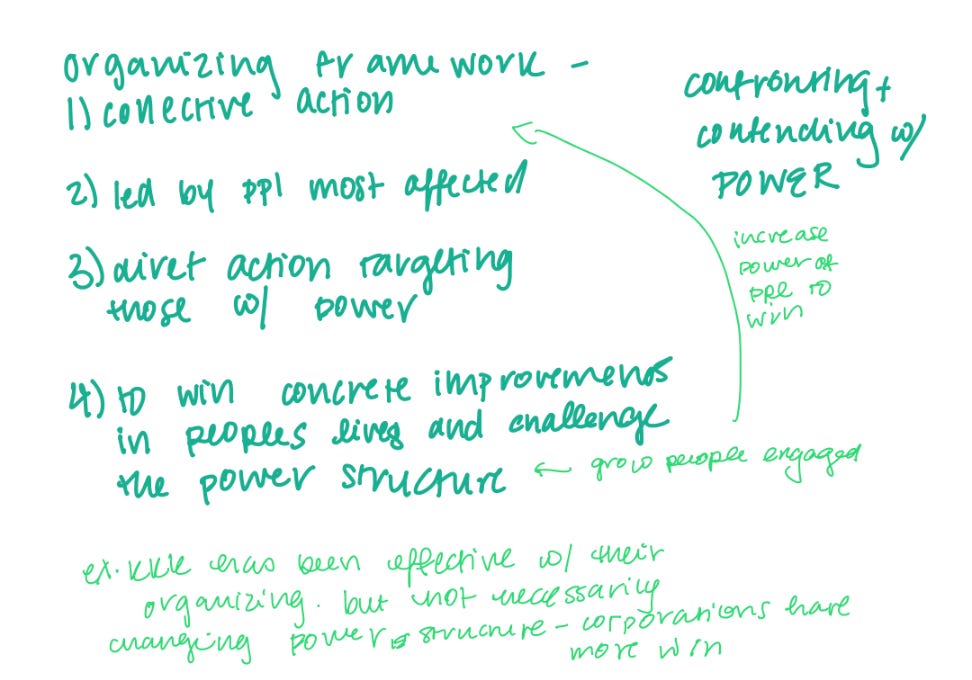 organizing framework -
1) collective action
2) led by ppl most affected
3) diret action targeting
those w/ power
4) to win concrete improvements
in peoples lives and challenge
the power structure
← grow people engaged
confronting +
contending w/
POWER
increase
power of
ppl to
win
ex. KKK has been effective w/ their
organizing. but not necessarily
changing power structure - corporations have
more win